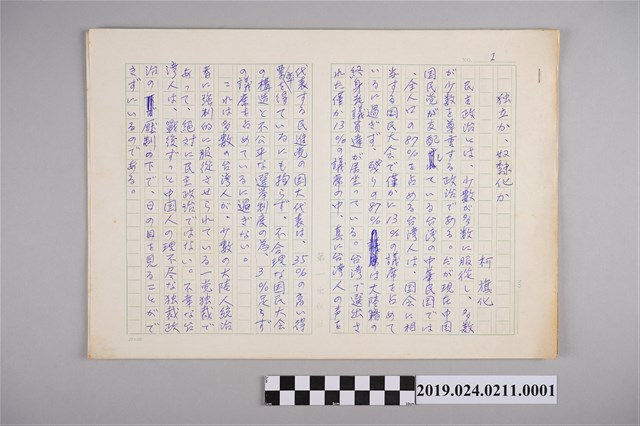 1
独立か、奴隷化か
柯 旗化
民主政治とは、少数が多数に服従し、多数
が少数を尊重する政治である。だが現在中国
国民党が支配している台湾の中華民国では
、全人口の87%を占める台湾人は、国会に相
当する国民大会で僅かに13%の議席を占めて
いるに過ぎず、残りの87%は大陸籍の
終身老議員達が居坐っている。台湾で選出さ
れた僅か13%の議席の中、真に台湾人の声を
代表する民進党の国大代表は、35%の高い得
票を得ているにも拘らず、不合理な国民大会
の構造と不公平な選挙制度の為、3%足らず
の議席を占めているに過ぎない。
これは多数の台湾人が、少数の大陸人統治
者に強制的に服従させられている一党独裁で
あって、絶対に民主政治ではない。不幸な台
湾人は、戦後ずっと中国人の理不尽な独裁政
治の圧制の下で、日の目を見ることがで
きずにいるのである。
2019.024.0211.0001